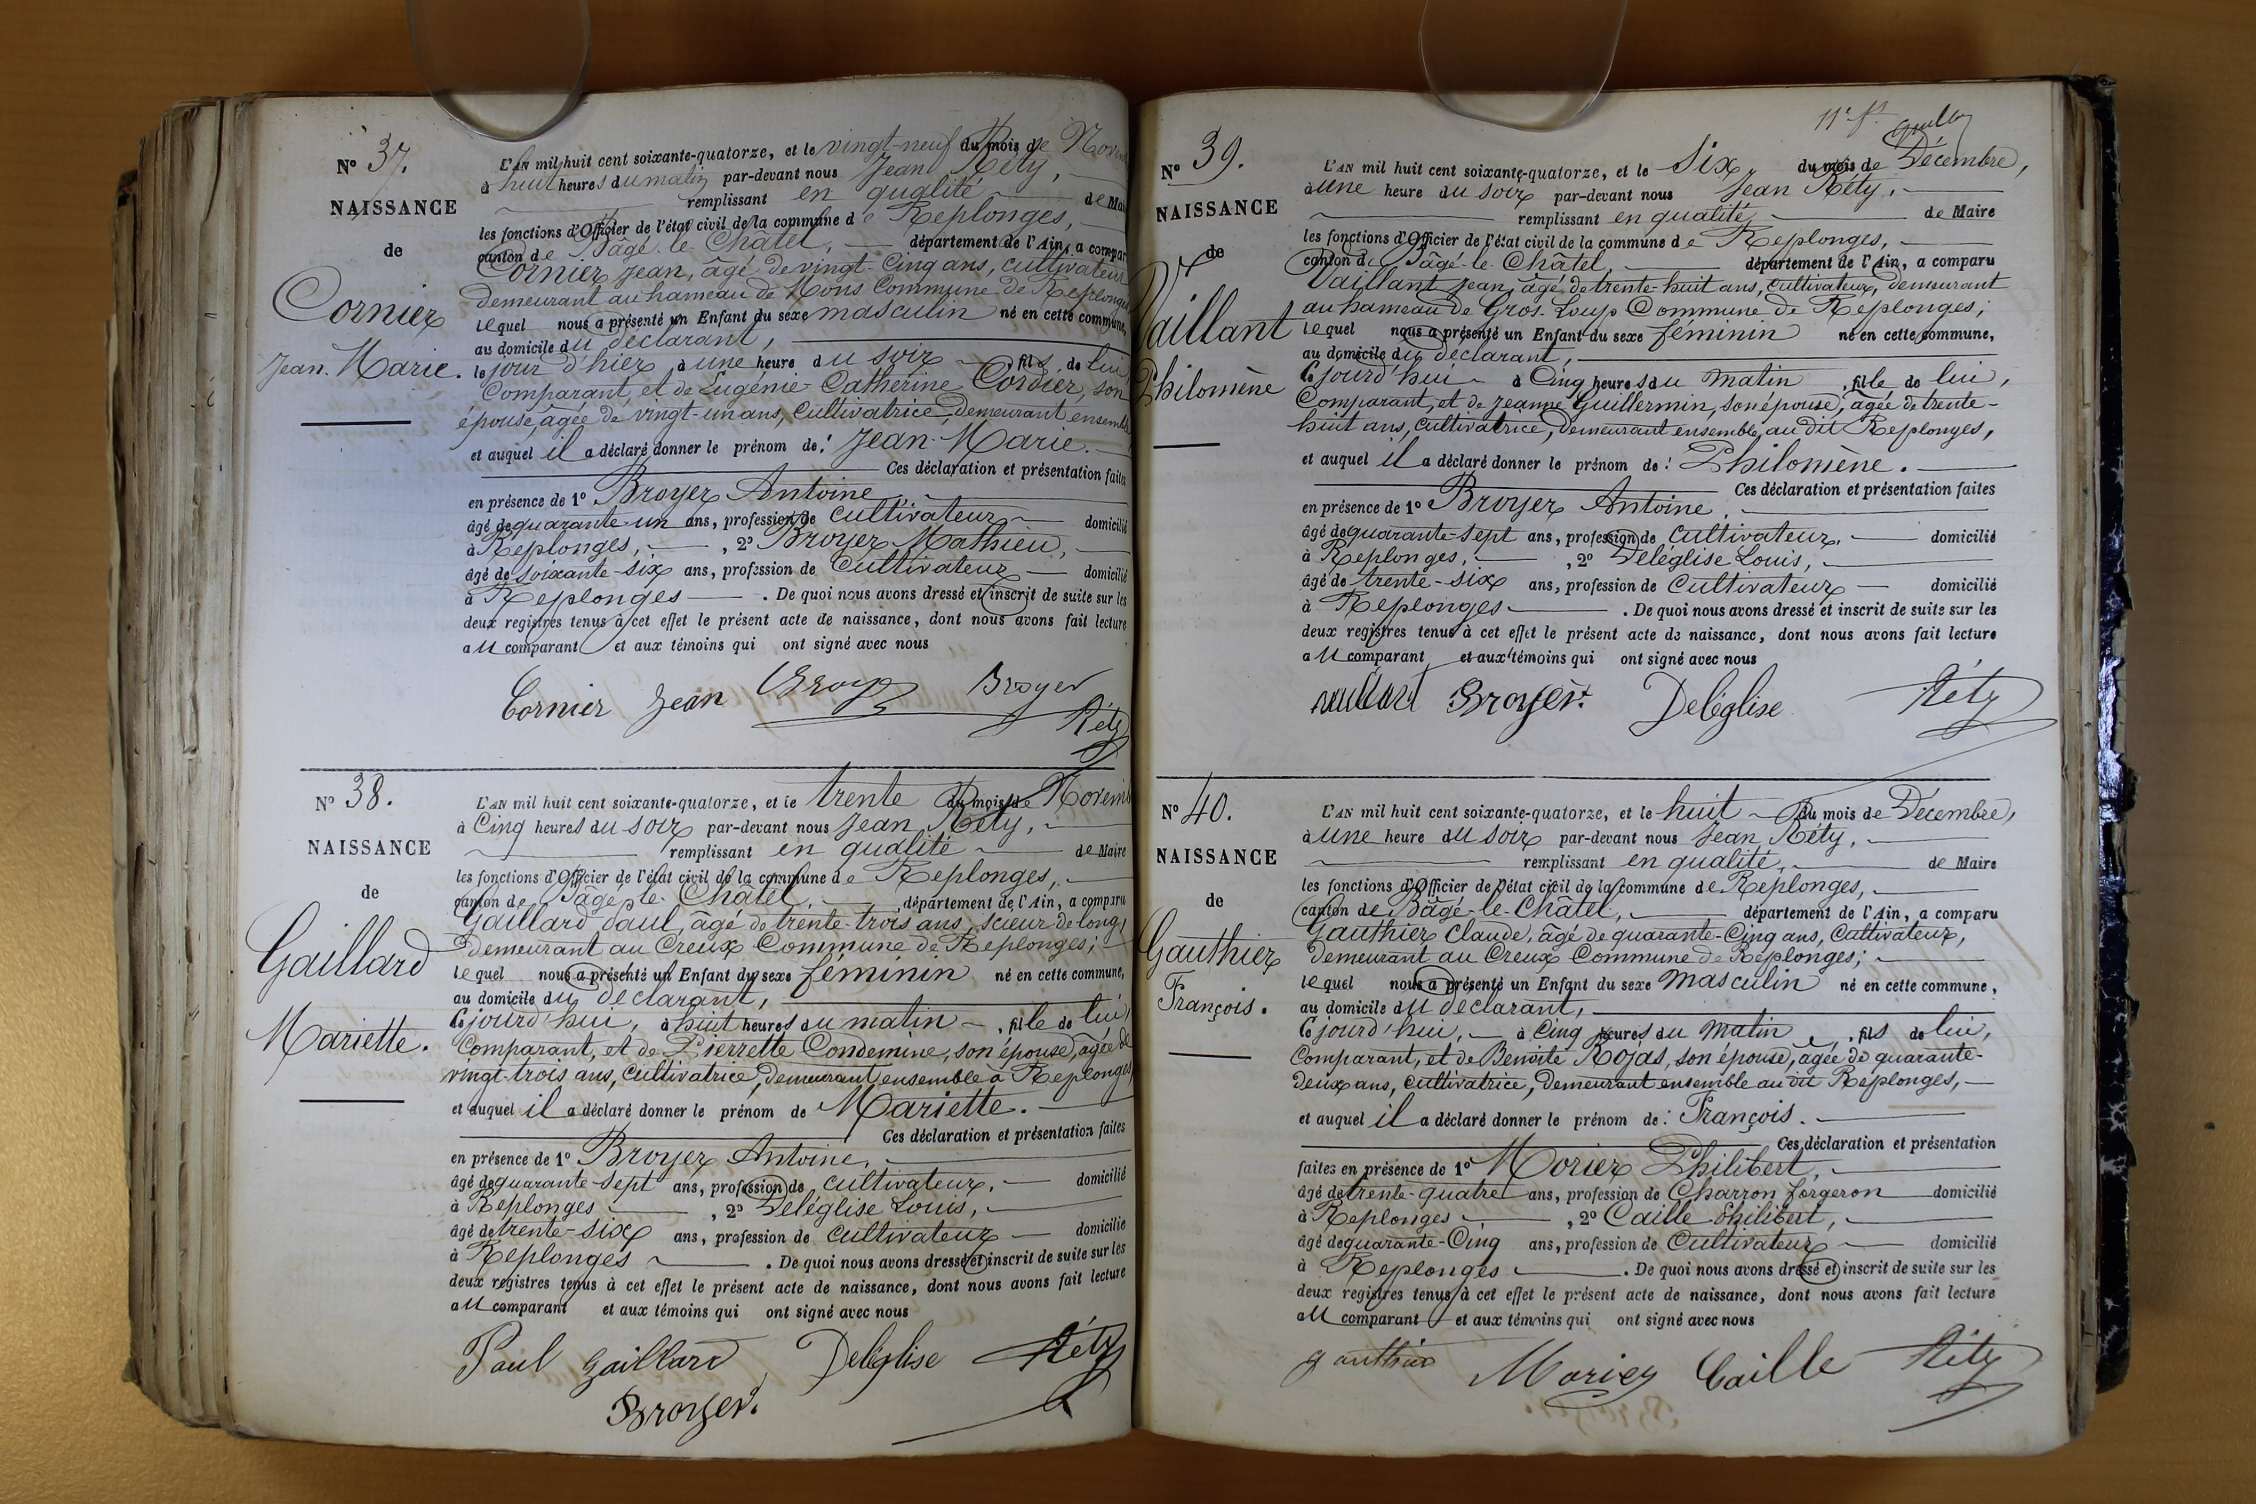 N° 37.
NAISSANCE
de
Cornier
Jean-Marie.
L'AN mil huit cent soixante-quatorze, et le vingt-neuf du mois de Novem
à huit heures du matin par-devant nous Jean Réty,
remplissant en qualité de Mai
les fonctions d'Officier de l'état civil de la commune de Replonges,
canton de Bâgé-le-Châtel, département de l'Ain, a compar
Cornier Jean, âgé de vingt-cinq ans, cultivateur
demeurant au hameau de Mons Commune de Replonges
lequel nous a présenté un Enfant du sexe masculin né en cette commune,
au domicile du déclarant,
le jour d'hier à une heure du soir, fils de lui
Comparant, et de Eugénie-Catherine Cordier, son
épouse, âgée de vingt-un ans, cultivatrice, demeurant ensemble
et auquel il a déclaré donner le prénom de: Jean-Marie.
Ces déclaration et présentation faites
en présence de 1° Broyer Antoine
âgé de quarante-un ans, profession de cultivateur domicilié
à Replonges, , 2° Broyer Mathieu,
âgé de soixante-six ans, profession de Cultivateur domicilié
à Replonges . De quoi nous avons dressé et inscrit de suite sur les
deux registres tenus à cet effet le présent acte de naissance, dont nous avons fait lecture
au comparant et aux témoins qui ont signé avec nous
Cornier Jean Broyer Broyer
Réty
N° 38.
NAISSANCE
de
Gaillard
Mariette.
L'AN mil huit cent soixante-quatorze, et le trente du mois de Novemb
à Cinq heures du soir par-devant nous Jean Réty,
remplissant en qualité de Maire
les fonctions d'Officier de l'état civil de la commune de Replonges,
canton de Bâgé-le-Châtel, département de l'Ain, a comparu
Gaillard Paul, âgé de trente-trois ans, scieur de long,
demeurant au Creux Commune de Replonges;
lequel nous a présenté un Enfant du sexe féminin né en cette commune,
au domicile du déclarant,
Cejourd'hui, à huit heures du matin, fille de lui,
Comparant, et de Pierrette Condemine, son épouse, âgée de
vingt-trois ans, cultivatrice, demeurant ensemble à Replonges
et auquel il a déclaré donner le prénom de Mariette.
Ces déclaration et présentation faites
en présence de 1° Broyer Antoine,
âgé de quarante-sept ans, profession de cultivateur, domicilié
à Replonges , 2° Deléglise Louis,
âgé de trente-six ans, profession de cultivateur domicilié
à Replonges . De quoi nous avons dressé et inscrit de suite sur les
deux registres tenus à cet effet le présent acte de naissance, dont nous avons fait lecture
au comparant et aux témoins qui ont signé avec nous
Paul Gaillard Deléglise Réty
Broyer.
N° 39.
NAISSANCE
de
Vaillant
Philomène
L'AN mil huit cent soixante-quatorze, et le Six du mois de Décembre,
à une heure du soir par-devant nous Jean Réty,
remplissant en qualité de Maire
les fonctions d'Officier de l'état civil de la commune de Replonges,
canton de Bâgé-le-Châtel, département de l'Ain, a comparu
Vaillant Jean, âgé de trente-huit ans, cultivateur, demeurant
au hameau de Gros-Loup Commune de Replonges;
lequel nous a présenté un Enfant du sexe féminin né en cette commune,
au domicile du déclarant,
Cejourd'hui à Cinq heures du matin, fille de lui,
Comparant, et de Jeanne Guillermin, son épouse, âgée de trente-
huit ans, cultivatrice, demeurant ensemble, au dit Replonges,
et auquel il a déclaré donner le prénom de: Philomène.
Ces déclaration et présentation faites
en présence de 1° Broyer Antoine,
âgé de quarante-sept ans, profession de cultivateur, domicilié
à Replonges, , 2° Deléglise Louis,
âgé de trente-six ans, profession de cultivateur domicilié
à Replonges . De quoi nous avons dressé et inscrit de suite sur les
deux registres tenus à cet effet le présent acte de naissance, dont nous avons fait lecture
au comparant et aux témoins qui ont signé avec nous
vaillant Broyer. Deléglise Réty
N° 40.
NAISSANCE
de
Gauthier
François.
L'AN mil huit cent soixante-quatorze, et le huit du mois de Décembre,
à une heure du soir par-devant nous Jean Réty,
remplissant en qualité, de Maire
les fonctions d'Officier de l'état civil de la commune de Replonges,
canton de Bâgé-le-Châtel, département de l'Ain, a comparu
Gauthier Claude, âgé de quarante-Cinq ans, Cultivateur,
demeurant au Creux Commune de Replonges;
lequel nous a présenté un Enfant du sexe masculin né en cette commune,
au domicile du déclarant,
Cejourd'hui, à cinq heures du matin, fils de lui,
Comparant, et de Benoite Rojas, son épouse, âgée de quarante-
deux ans, cultivatrice, demeurant ensemble au dit Replonges,
et auquel il a déclaré donner le prénom de: François.
Ces déclaration et présentation
faites en présence de 1° Morier Philibert,
âgé de trente-quatre ans, profession de Charron forgeron domicilié
à Replonges , 2° Caille Philibert,
âgé de quarante-Cinq ans, profession de Cultivateur domicilié
à Replonges . De quoi nous avons dressé et inscrit de suite sur les
deux registres tenus à cet effet le présent acte de naissance, dont nous avons fait lecture
au comparant et aux témoins qui ont signé avec nous
gauthier Morier Caille Réty